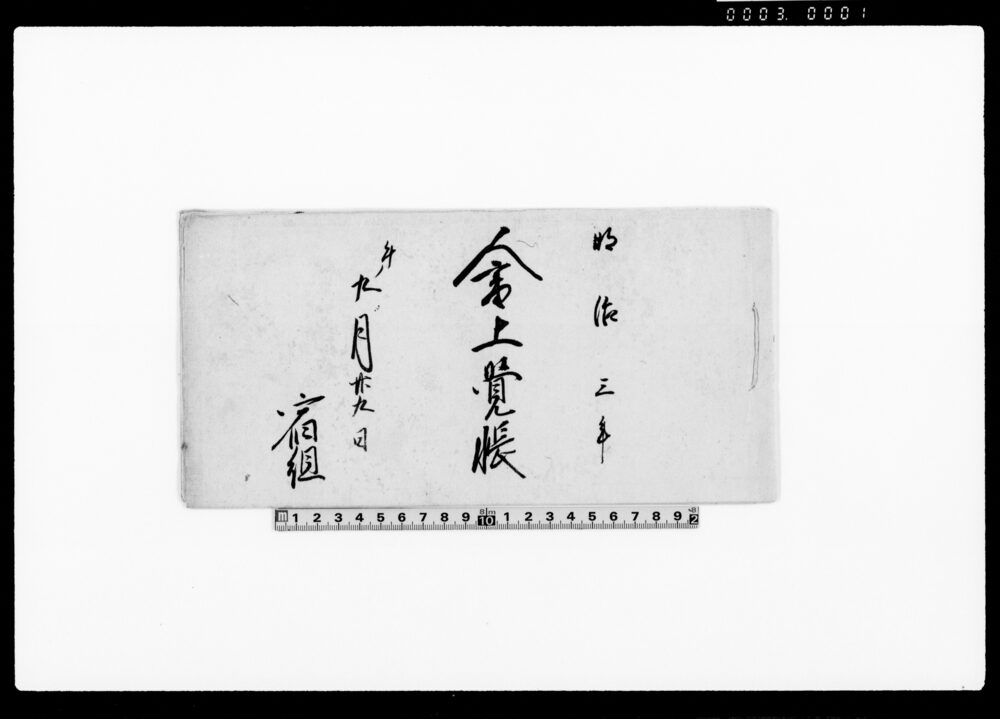 0003. 0001
明治三年
上覺帳
午九月廿九日
宿組
1 2 3 4 5 6 7 8 9 10 1 2 3 4 5 6 7 8 9 2